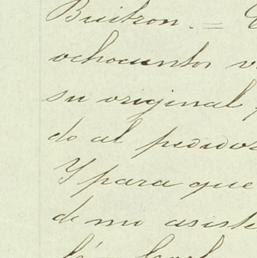 Buitron. =
ochocientos v
su original
do al pedido
Y para que
de mi asiste